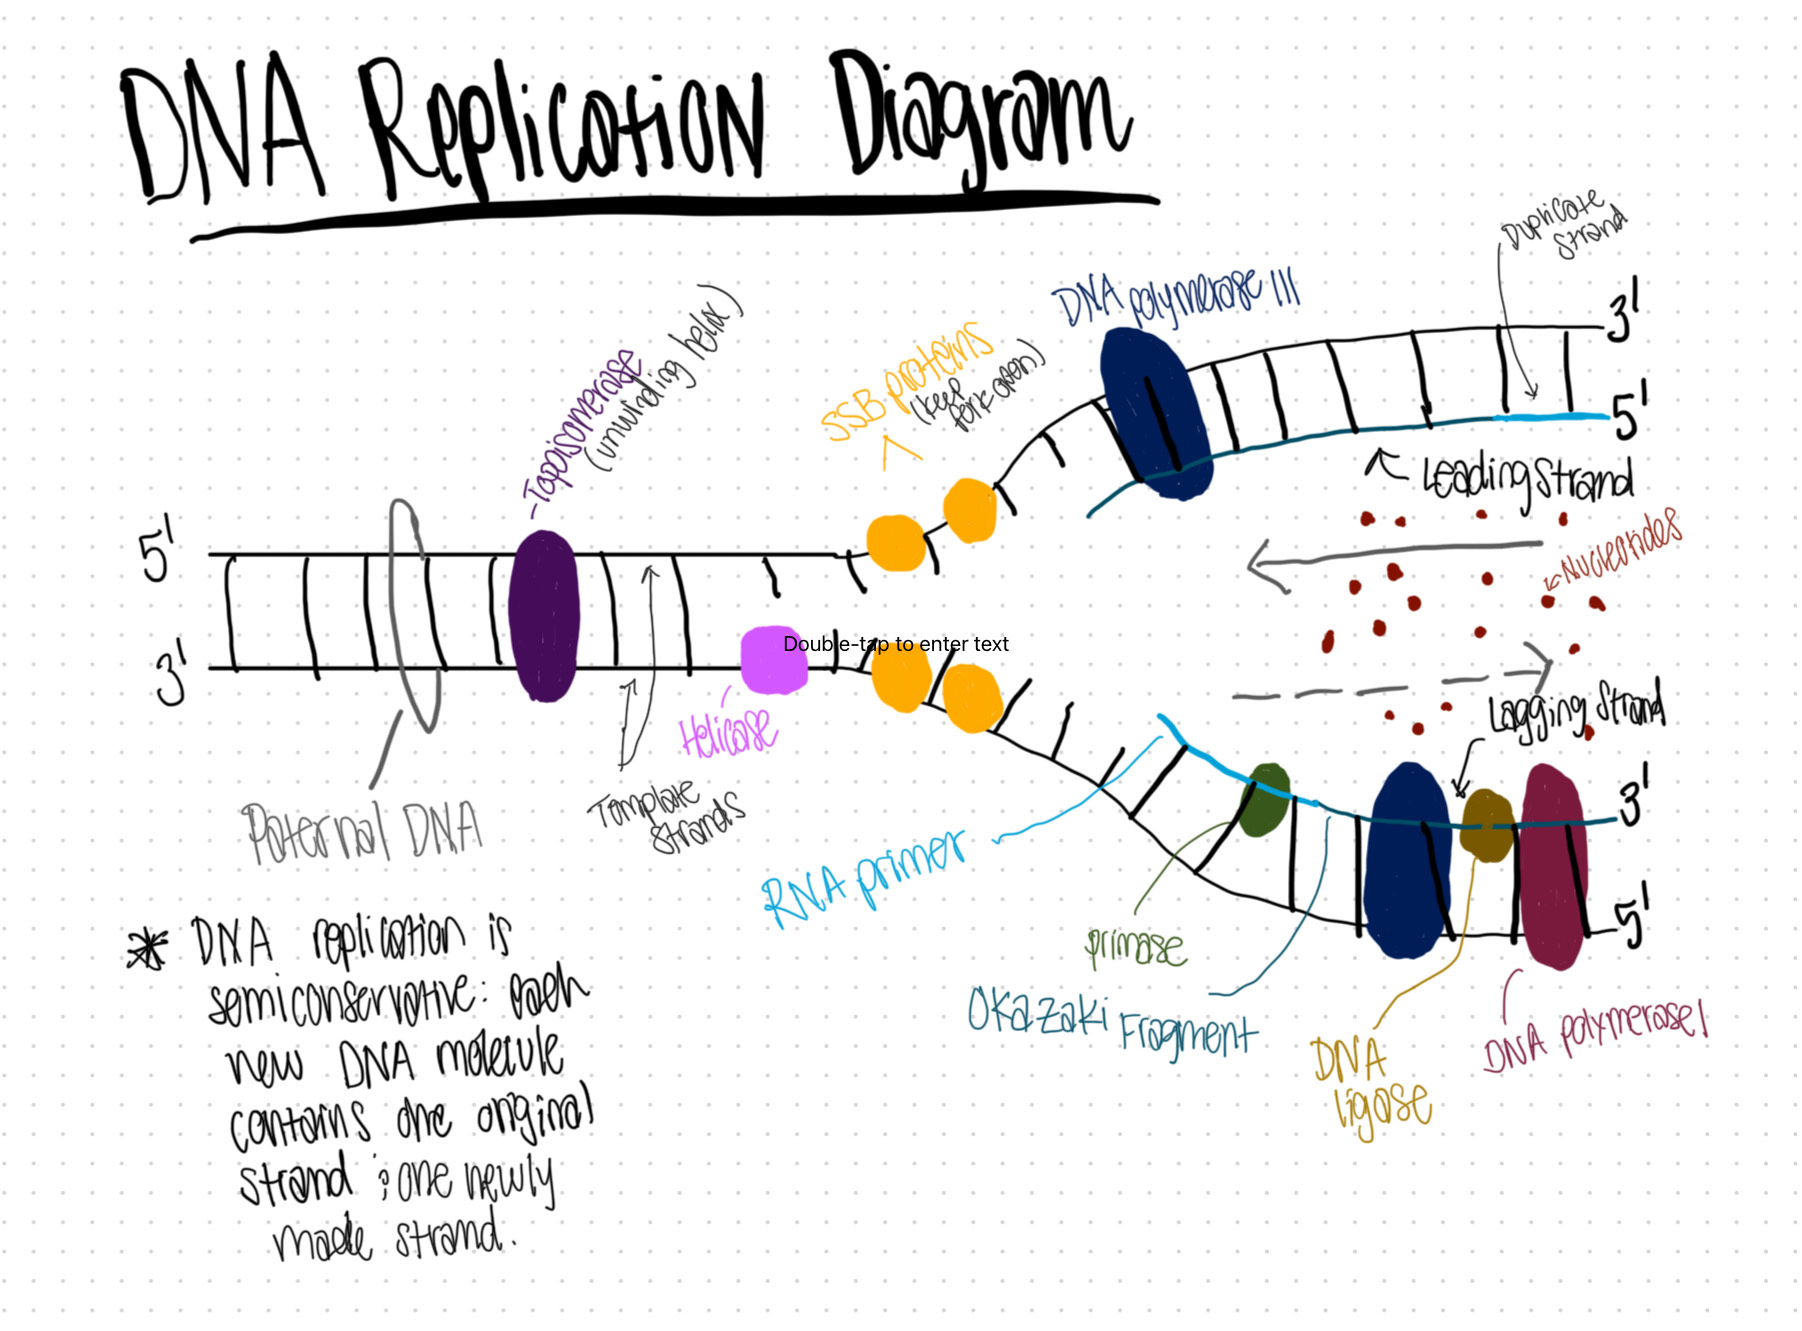 DNA Replication Diagram
Duplicate
Strand
DNA polymerase III
3'
5'
SSB proteins
(keep
fork open)
Topoisomerase
(unwinding helix)
Leading Strand
Nucleotides
5'
3'
Double-tap to enter text
Helicase
Lagging Strand
Template
Strands
Paternal DNA
RNA primer
3'
5'
primase
Okazaki Fragment
DNA
ligase
DNA polymerase I
* DNA replication is
semiconservative: each
new DNA molecule
contains one original
strand & one newly
made strand.